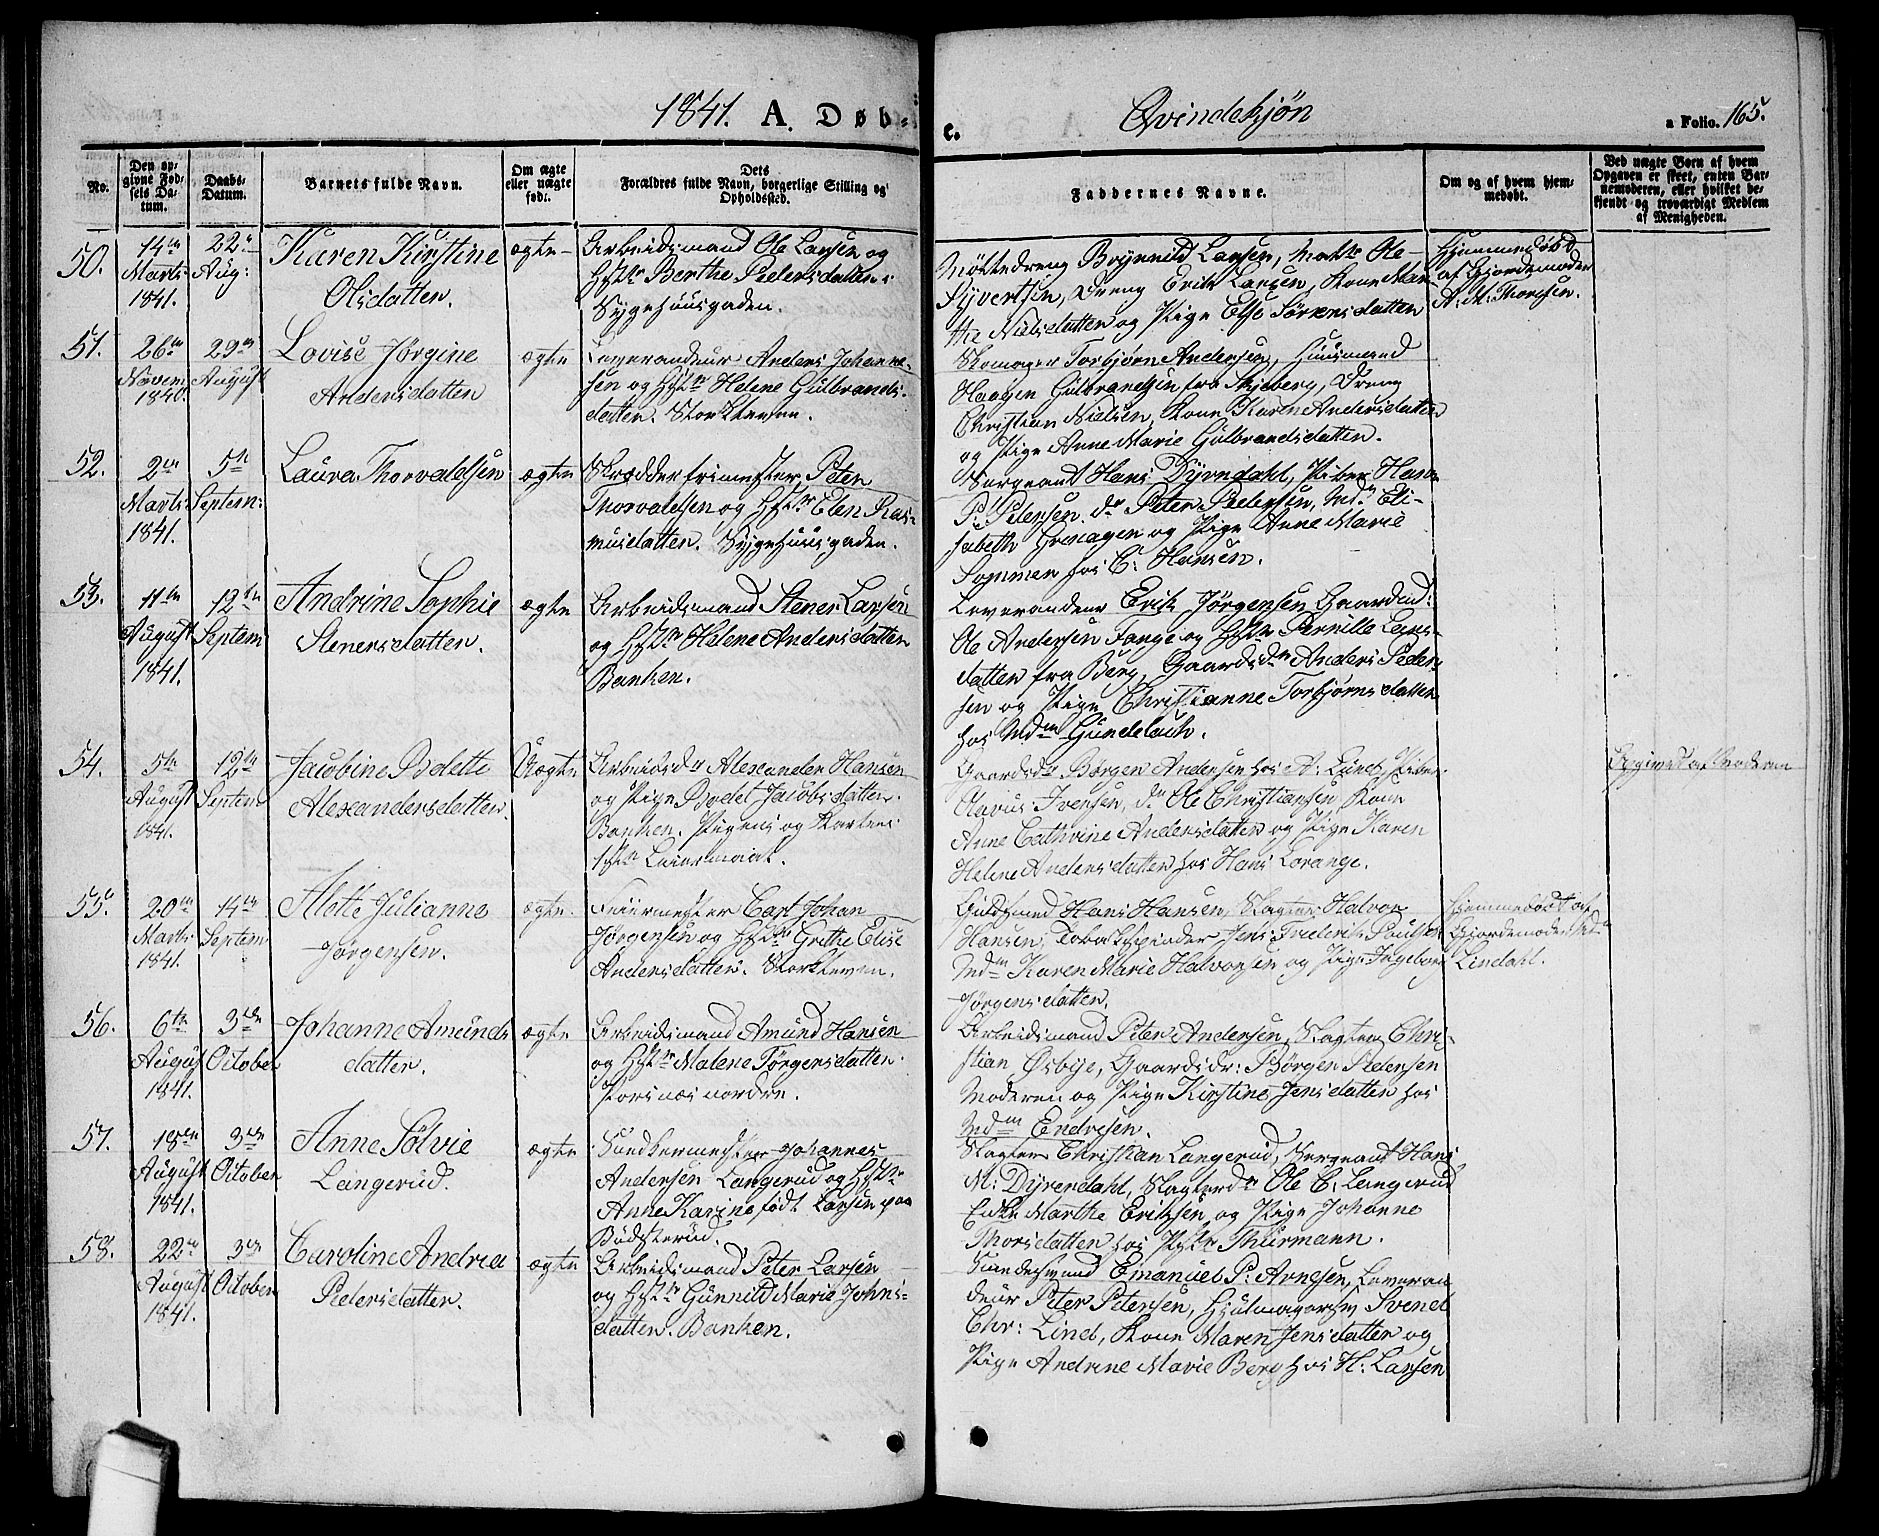 1841. A. Døb-
e. Qvindekjøn a Folio. 165.
No.
Den op-
givne Fød-
sels Da-
tum.
Daabs-
Datum.
Barnets fulde Navn.
Om ægte
eller uægte
født.
Dets
Forældres fulde Navn, borgerlige Stilling og
Opholdssted.
Faddernes Navne.
Om og af hvem hjem-
medøbt.
Ved uægte Børn af hvem
Opgaven er skeet, enten Bar-
nemoderen, eller hvilket be-
kjendt og troværdigt Medlem
af Menigheden.
50.
14de
Marts
1841.
22de
Aug:
Karen Kirstine
Olsdatten.
ægte
Arbeidsmand Ole Larsen og
Hstr Berthe Pedersdatten
Sygehuusgaden.
Brynnild Larsen, Ole
Syvertsen, Dreng Erik Larsen, Kone Mar-
the Nielsdatten og Pige Else Sörensdatten
Hjemmedøbt
af Gjordemoder
A. M. Thoresen.
51.
26de
Novem
1840.
29de
August
Lovise Jørgine
Andersdatten
ægte
Leverandeur Anders Johanne-
sen og Hstr Helene Gulbrands-
datten. Storkleven.
Skomager Torbjørn Andersen, Huusmand
Haagen Gulbrandsen fra Skjeberg, Dreng
Christian Nielsen, Kone Karen Andersdatten
og Pige Anne Marie Gulbrandsdatten.
52.
2den
Marts
1841.
5te
Septem:
Laura Thorvaldsen
ægte
Skrædderfrimester Peter
Thorvaldsen og Hstr Elen Ras-
musdatten. Sygehuusgaden.
Sergeant Hans Dyrendahl, Hans
P. Petersen. do Peter Pedersen, Mdm Eli-
sabeth og Pige Anne Marie
Sommer hos C. Hansen.
53.
11te
August
1841.
12te
Septem
Andrine Sophie
Stenersdatten.
ægte
Arbeidsmand Stener Larsen
og Hstr Helene Andersdatten
Banken.
Leverandeur Erik Jørgensen Gaardsd:
Ole Andersen Tange og Hstr Pernille Lars-
datten fra Berg, Gaardsdr Anders Peder-
sen og Pige Christianne Torbjørnsdatten
hos Mdm Gundelach.
54.
5te
August
1841.
12te
Septem
Jacobine Bolette
Alexandersdatten.
Uægte
Arbeidsdr Alexander Hansen
og Pige Bodel Jacobsdatten.
Banken. Pigens og Karlens
1ste Leiermaal.
Gaardsdr Børgen Andersen hos A. Lund,
Olavus Ivensen, do Ole Christiansen, Kone
Anne Cathrine Andersdatten og Pige Karen
Helene Andersdatten hos Hans Lorange.
Opgivet af Moderen
55.
20de
Marts
1841.
14de
Septem
Alette Julianne
Jørgensen.
ægte.
Feiermester Carl Johan
Jørgensen og Hstr Grethe Elise
Andersdatten. Storkleven.
Guldsmed Hans Hansen, Slagter Halvor
Hansen, Tobakspinder Jens Frederik Poulsen
Mdm Karen Marie Halvorsen og Pige Ingebor
Jørgensdatten.
Hjemmedøbt af
Gjordemoder Md
Lindahl.
56.
6te
August
1841.
3die
October
Johanne Amunds
datter.
ægte
Arbeidsmand Amund Hansen
og Hstr Malene Törgersdatten
Porsnæs nordre.
Arbeidsmand Peter Andersen, Slagter Chri-
stian Øsbye, Gaardsdr: Börgen Pedersen
Moderen og Pige Kirstine Jensdatten hos
Mdm Endresen.
57.
18de
August
1841.
3die
October
Anne Sølvie
Langerud.
ægte
Snedkermester Johannes
Andersen Langerud og Hstr
Anne Karine født Larsen paa
Bødsterud.
Slagter Christian Langerud, Sergeant Hans
M: Dyrendahl, Slagterdr Ole C. Langerud
Enke Marthe Eriksen og Pige Johanne
Thorsdatten hos Thurmann.
58.
22de
August
1841.
3die
October
Caroline Andrea
Pedersdatten.
ægte
Arbeidsmand Peter Larsen
og Hstr Gunnild Marie Johns-
datten. Banken.
Emanuel P. Arnesen, Leveran
deur Peter Petersen, Svend
Chr: Lind, Kone Maren Jensdatten og
Pige Andrine Marie Berg hos H: Larsen